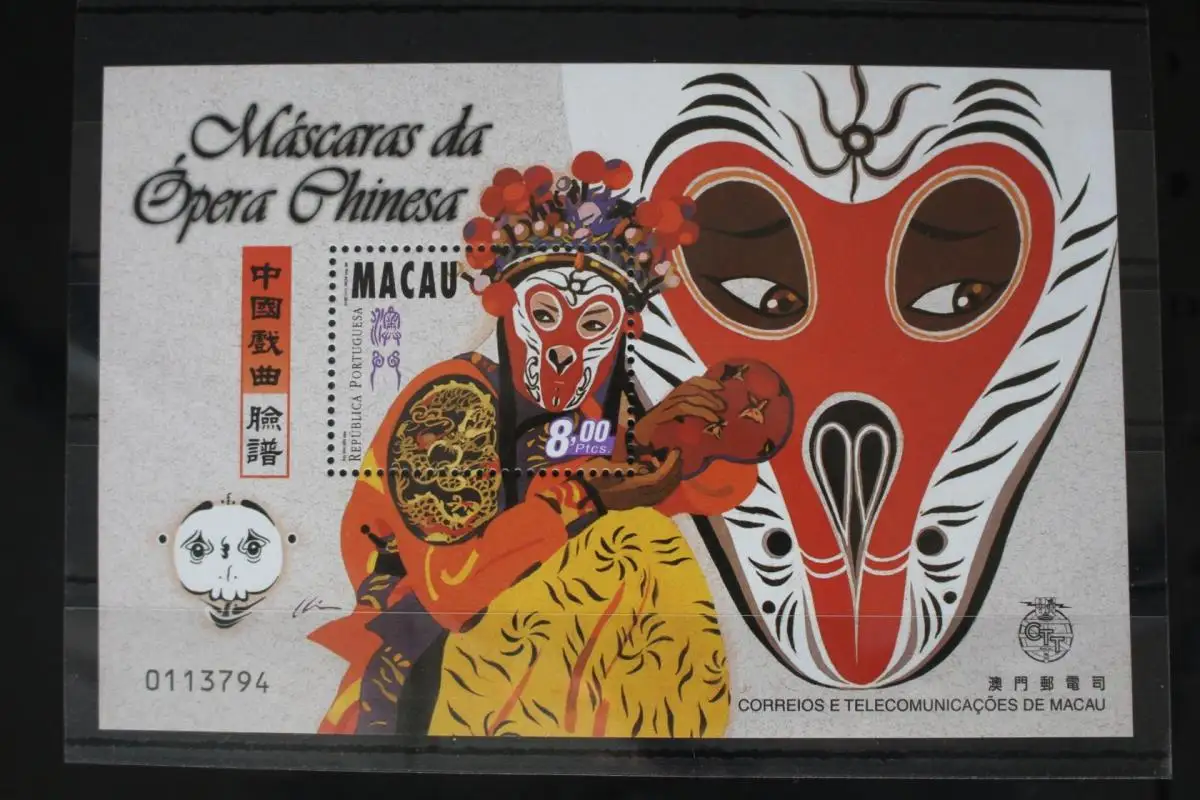 Máscaras da
Ópera Chinesa
中國戲曲
臉譜
MACAU
REPÚBLICA PORTUGUESA
澳門
8,00
Ptcs.
0113794
CTT
澳門郵電司
CORREIOS E TELECOMUNICAÇÕES DE MACAU